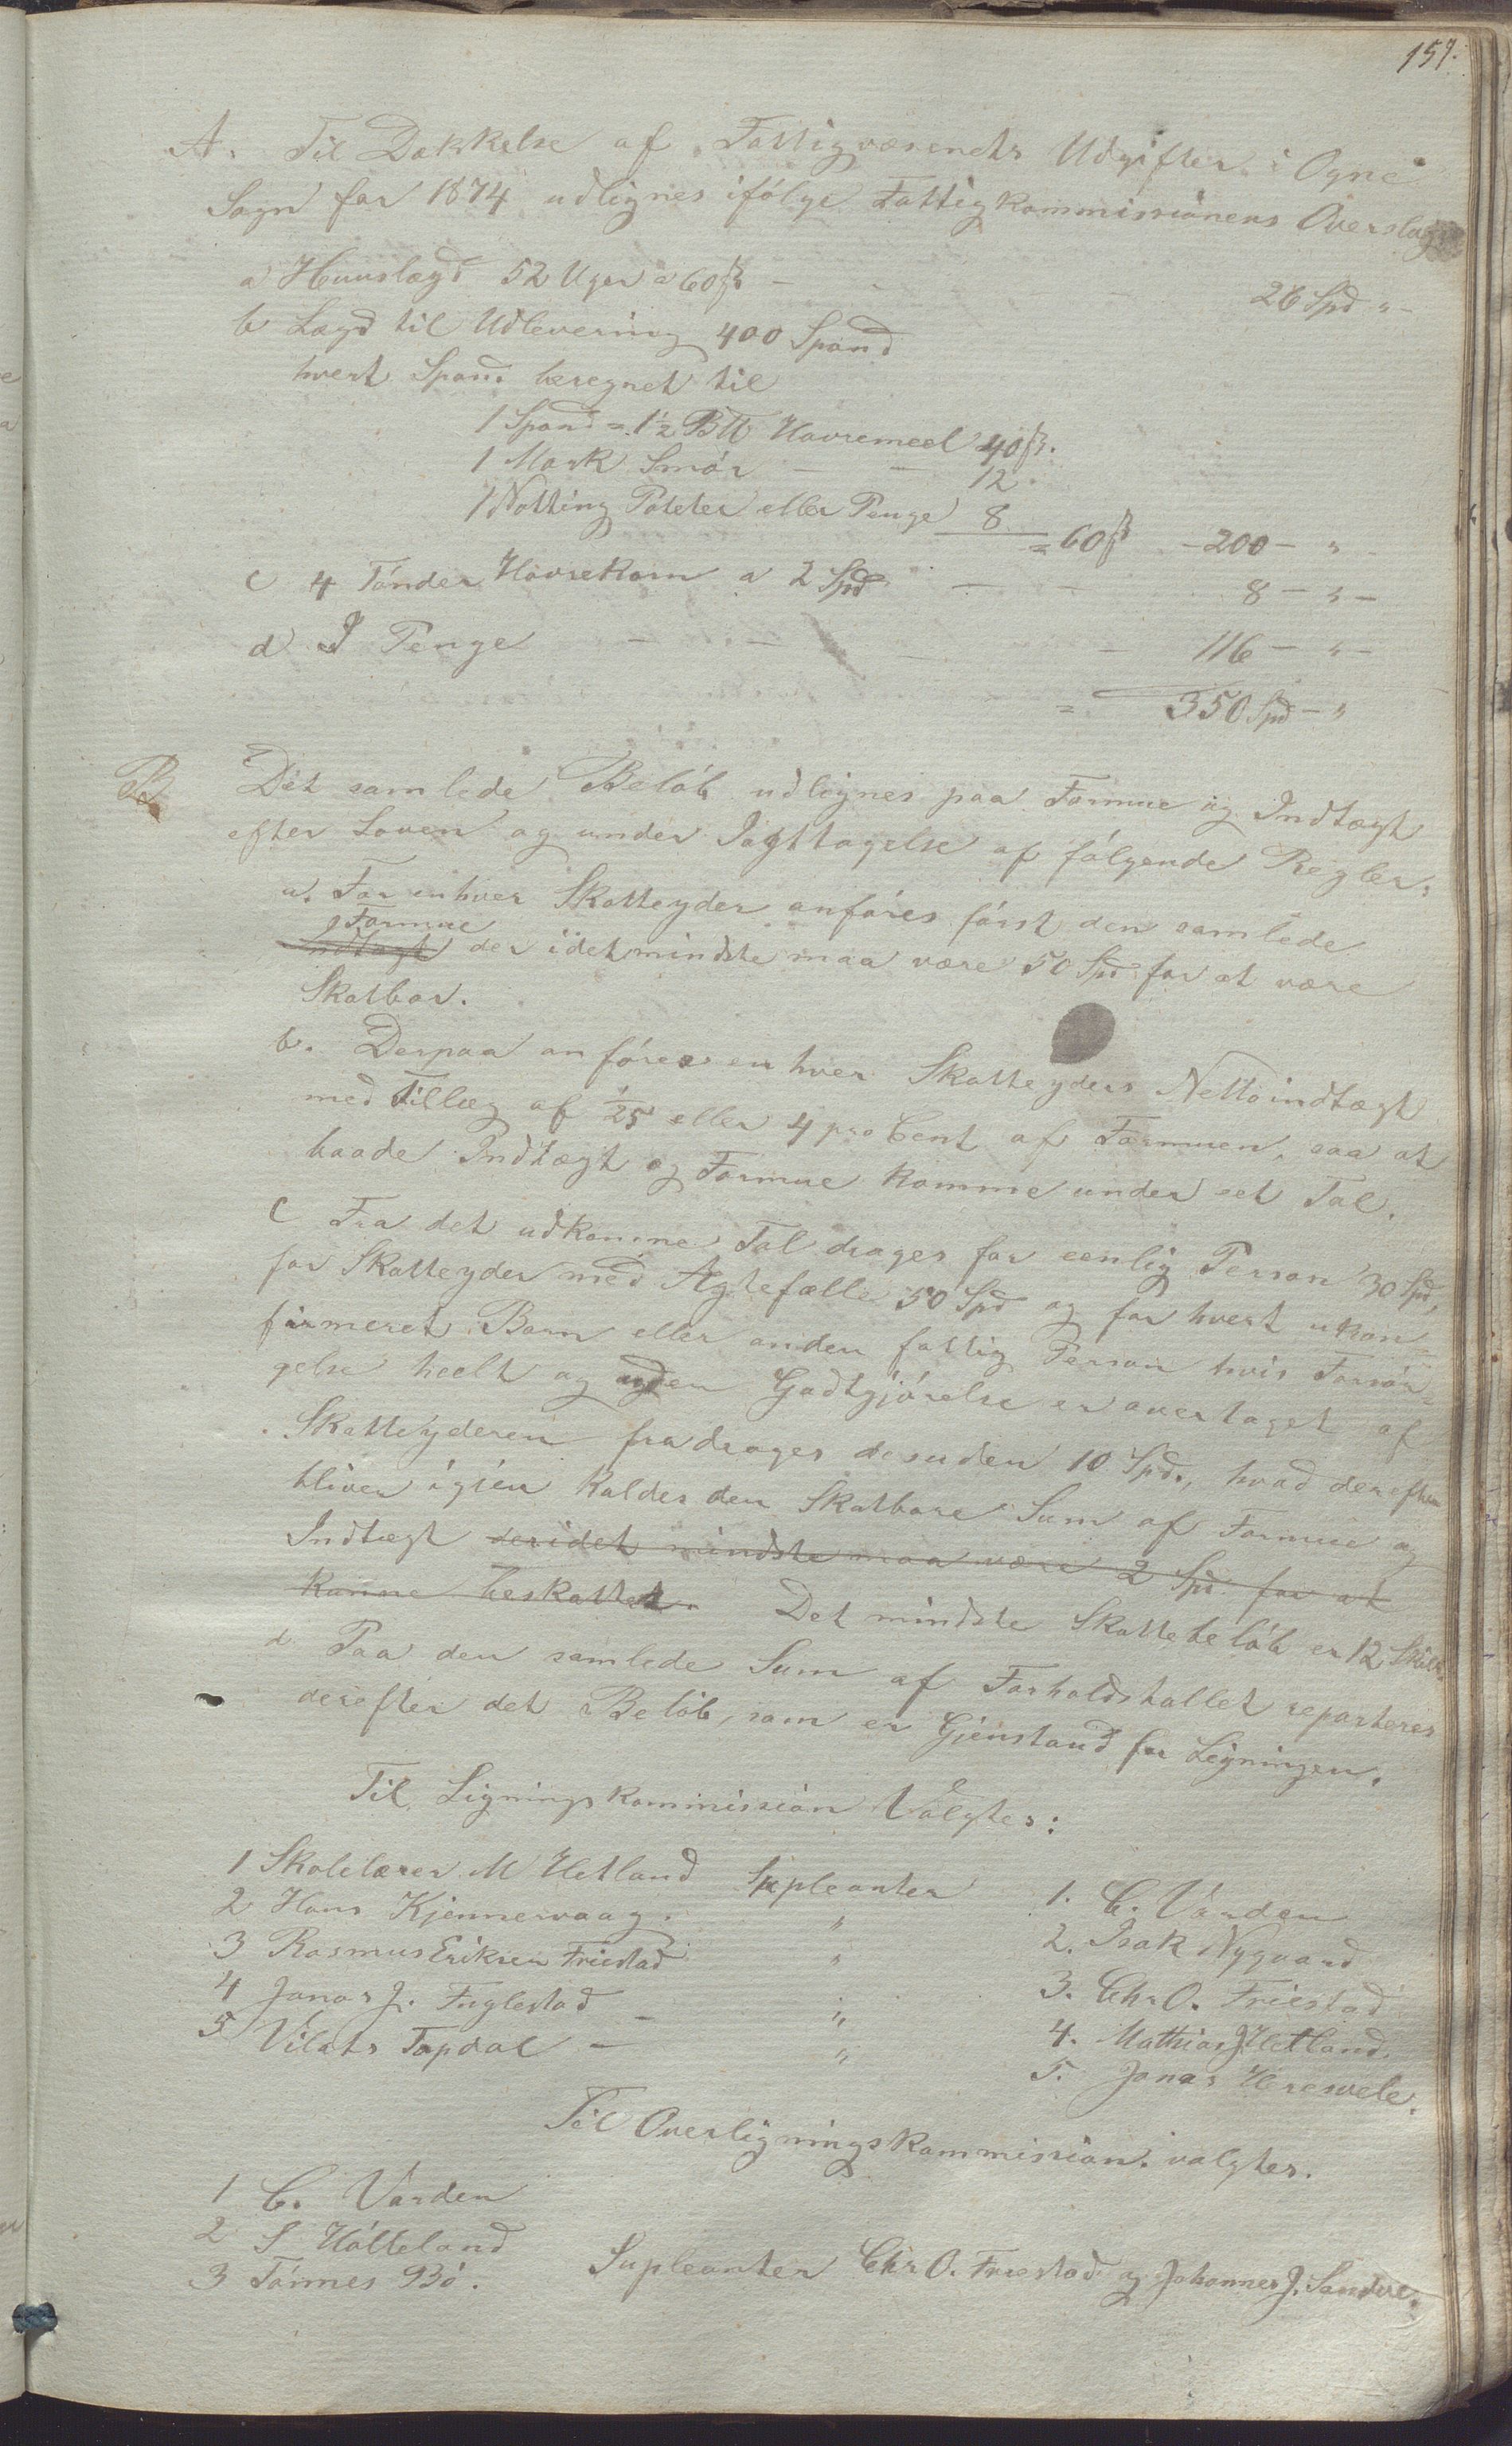 159.
A. Til Dækkelse af Fattigvæsenets Udgifter i Ogne
Sogn for 1874 udlignes ifölge Fattigkommissionens Overslag:
a Huuslægd 52 Uger a 60 ß - 26 Spd " -
b Lægd til Udlevering 400 Spand
hvert Spand beregnet til
1 Spand = 1½ B℔ Havremeel 40 ß.
1 Mark Smör - - 12.
1 Notting Poteter eller Penge 8
= 60 ß - 200 - " -
c 4 Tönder Havrekorn a 2 Spd - - 8 - " -
d I Penge - - - - 116 - " -
= 350 Spd - "
B Det samlede Belöb udlignes paa Formue og Indtægt
efter Loven og under Iagttagelse af fölgende Regler:
a. For enhver Skatteyder anföres först den samlede
Formue
Indtægt der idetmindste maa være 50 Spd for at være
Skatbar.
b. Derpaa anföres enhver Skatteyders Nettoindtægt
med Tillæg af 1/25 eller 4 pro Cent af Formuen, saa at
baade Indtægt og Formue komme under et Tal.
C Fra det udkomne Tal drages for eenlig Person 30 Spd,
for Skatteyder med Ægtefælle 50 Spd og for hvert ukon-
firmeret Barn eller anden fattig Person hvis Forsör=
gelse heelt og uden Godtgjörelse er overtaget af
Skatteyderen fradrages desuden 10 Spd., hvad derefter
bliver igien kaldes den Skatbare Sum af Formue og
Indtægt der idet mindste maa være 2 Spd for at
kunne beskattet. Det mindste Skattebelöb er 12 Skill.
d Paa den samlede Sum af Forholdstallet reparteres
derefter det Belöb, som er Gjenstand for Ligningen.
Til Ligningskommission Valgtes:
1 Skolelærer M Hetland Supleanter 1. C. Varden
2 Hans Kjennervaag. " 2. Isak Nygaard
3 Rasmus Eriksen Friestad " 3. Chr. O. Friestad
4 Jonas J. Fuglestad - " 4. Mathias J Hetland.
5 Vilats Tapdal - " 5. Jonas Hresvele.
Til Overligningskommission valgtes.
1 C. Varden
2 S Hölleland
3 Tönnes Bö. Supleanter Chr O. Friestad og Johannes J. Sandve.